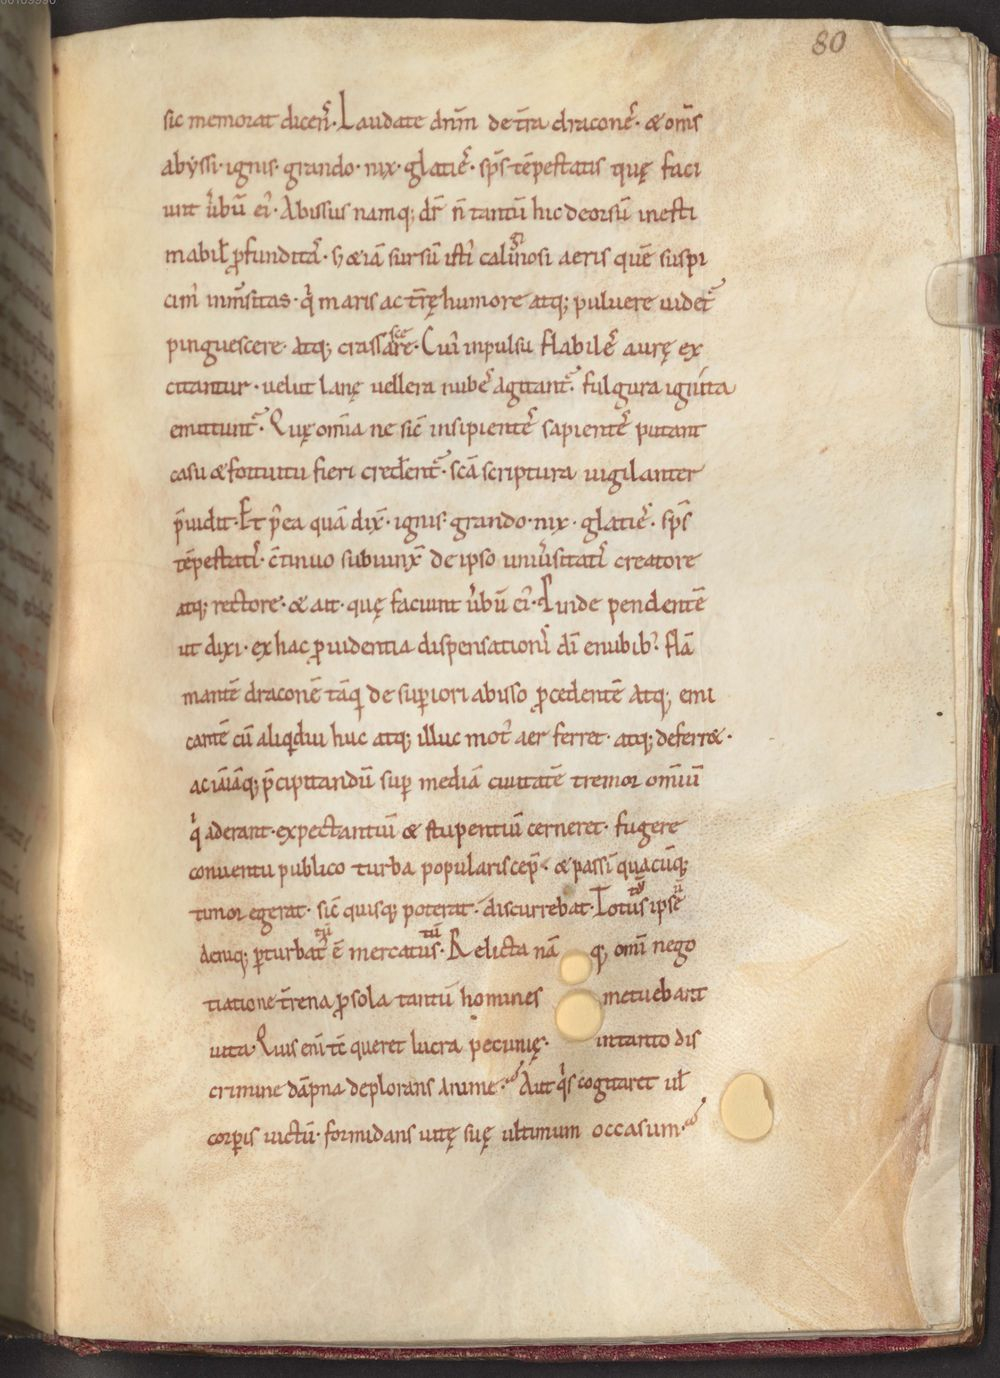 80
sic memorat dicenˢ. Laudate dnm̄ de tr̄a draconeˢ. & om̄s
abyssi. ignis. grando. nix. glatieˢ. sps̄ tēpestatis quę faci
unt ůbū eiˢ. Abissus namq; dr̄ n̄ tantū hic deorsū inesti
mabil̵ ꝓfunditaˢ. s; &iā sursū isti caliginosi aeris quē suspi
cimˢ inm̄sitas. qͥ maris ac tr̄ę humore atq; puluere uidet᷑
pinguescere. atq; crassascere. Cuiˢ inpulsu flabileˢ aurę ex
citantur. uelut lanę uellera nubeˢ agitant᷑. fulgura ignita
emittunt᷑. Quę om̄ia ne sic̄ insipienteˢ sapienteˢ putant
casu & fortuitu fieri credent᷑. scā scriptura uigilanter
p̄uidit. Et p̱ea quā dix̄. ignis. grando. nix. glatieˢ. sps̄
tēpestatiˢ. c̄tinuo subiunx̄ de ipso uniůsitatiˢ creatore
atq; rectore. & ait. quę faciunt ůbū eiˢ. Proinde pendentē
ut dixi. ex hac ꝓuidentia dispensationiˢ dī enubibˀ. flā
mantē draconē tāq̄ de supiori abisso ꝓcedentē atq; emi
cantē cū aliqͣdiu huc atq; illuc motˢ aer ferret. atq; deferr&.
ac iāiāq; p̄cipitandū sup mediā ciuitatē tremor omiū
qͥ aderant. expectantiū & stupentiū cerneret. fugere
conuentu publico turba popularis cep̄. & passī quacūq;
timor egerat. sic̄ quisq; poterat. discurrebat. Totus ipse
deniq; pturbatˢ ē mercatus. Relicta nā q; om̄i nego
tiatione tr̄ena ꝓ sola tantū homines metuebant
uita. Quis enī tc̄ queret lucra pecunię. intanto dis
crimine dāpna deplorans anime. Aut qͥs cogitaret ul̵
corpis uictū. formidans uitę suę ultimum occasum.